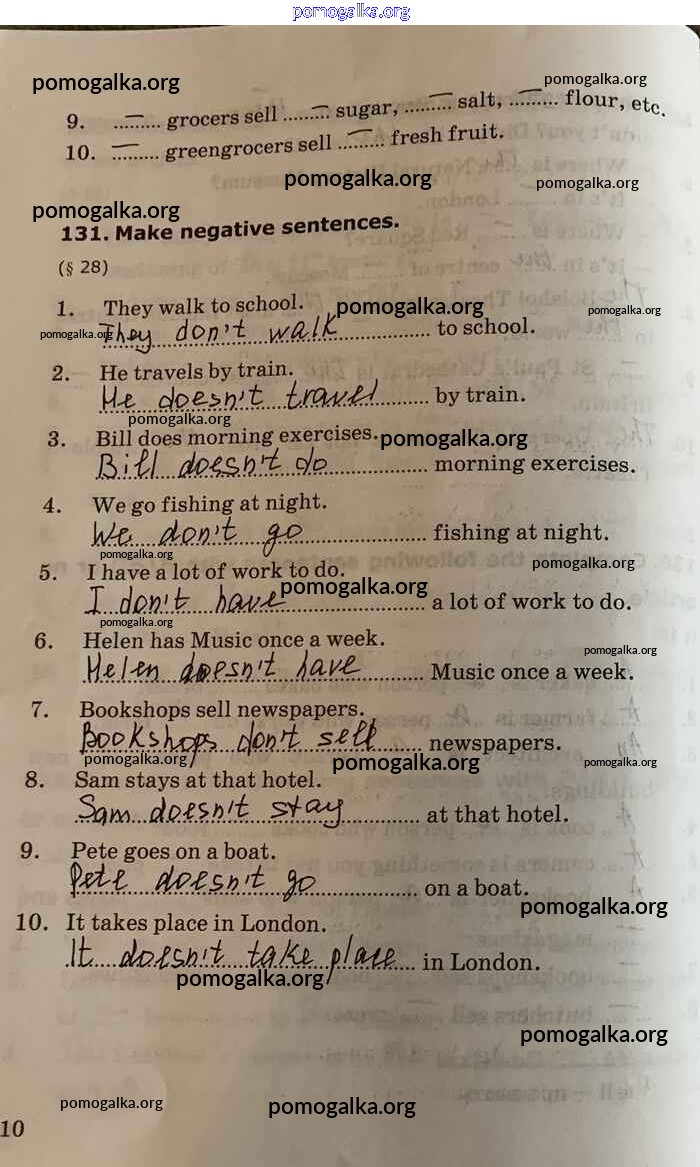 pomogalka.org
pomogalka.org pomogalka.org
9. — grocers sell — sugar, — salt, — flour, etc.
10. — greengrocers sell — fresh fruit.
pomogalka.org pomogalka.org
pomogalka.org
131. Make negative sentences.
(§ 28)
1. They walk to school.
pomogalka.org pomogalka.org
They don't walk to school.
pomogalka.org
2. He travels by train.
He doesn't travel by train.
pomogalka.org
3. Bill does morning exercises.
pomogalka.org
Bill doesn't do morning exercises.
4. We go fishing at night.
We don't go fishing at night.
pomogalka.org pomogalka.org
5. I have a lot of work to do.
pomogalka.org
I don't have a lot of work to do.
pomogalka.org
6. Helen has Music once a week.
pomogalka.org
Helen doesn't have Music once a week.
7. Bookshops sell newspapers.
Bookshops don't sell newspapers.
pomogalka.org pomogalka.org pomogalka.org
8. Sam stays at that hotel.
Sam doesn't stay at that hotel.
9. Pete goes on a boat.
Pete doesn't go on a boat.
pomogalka.org
10. It takes place in London.
It doesn't take place in London.
pomogalka.org
pomogalka.org
pomogalka.org pomogalka.org
10